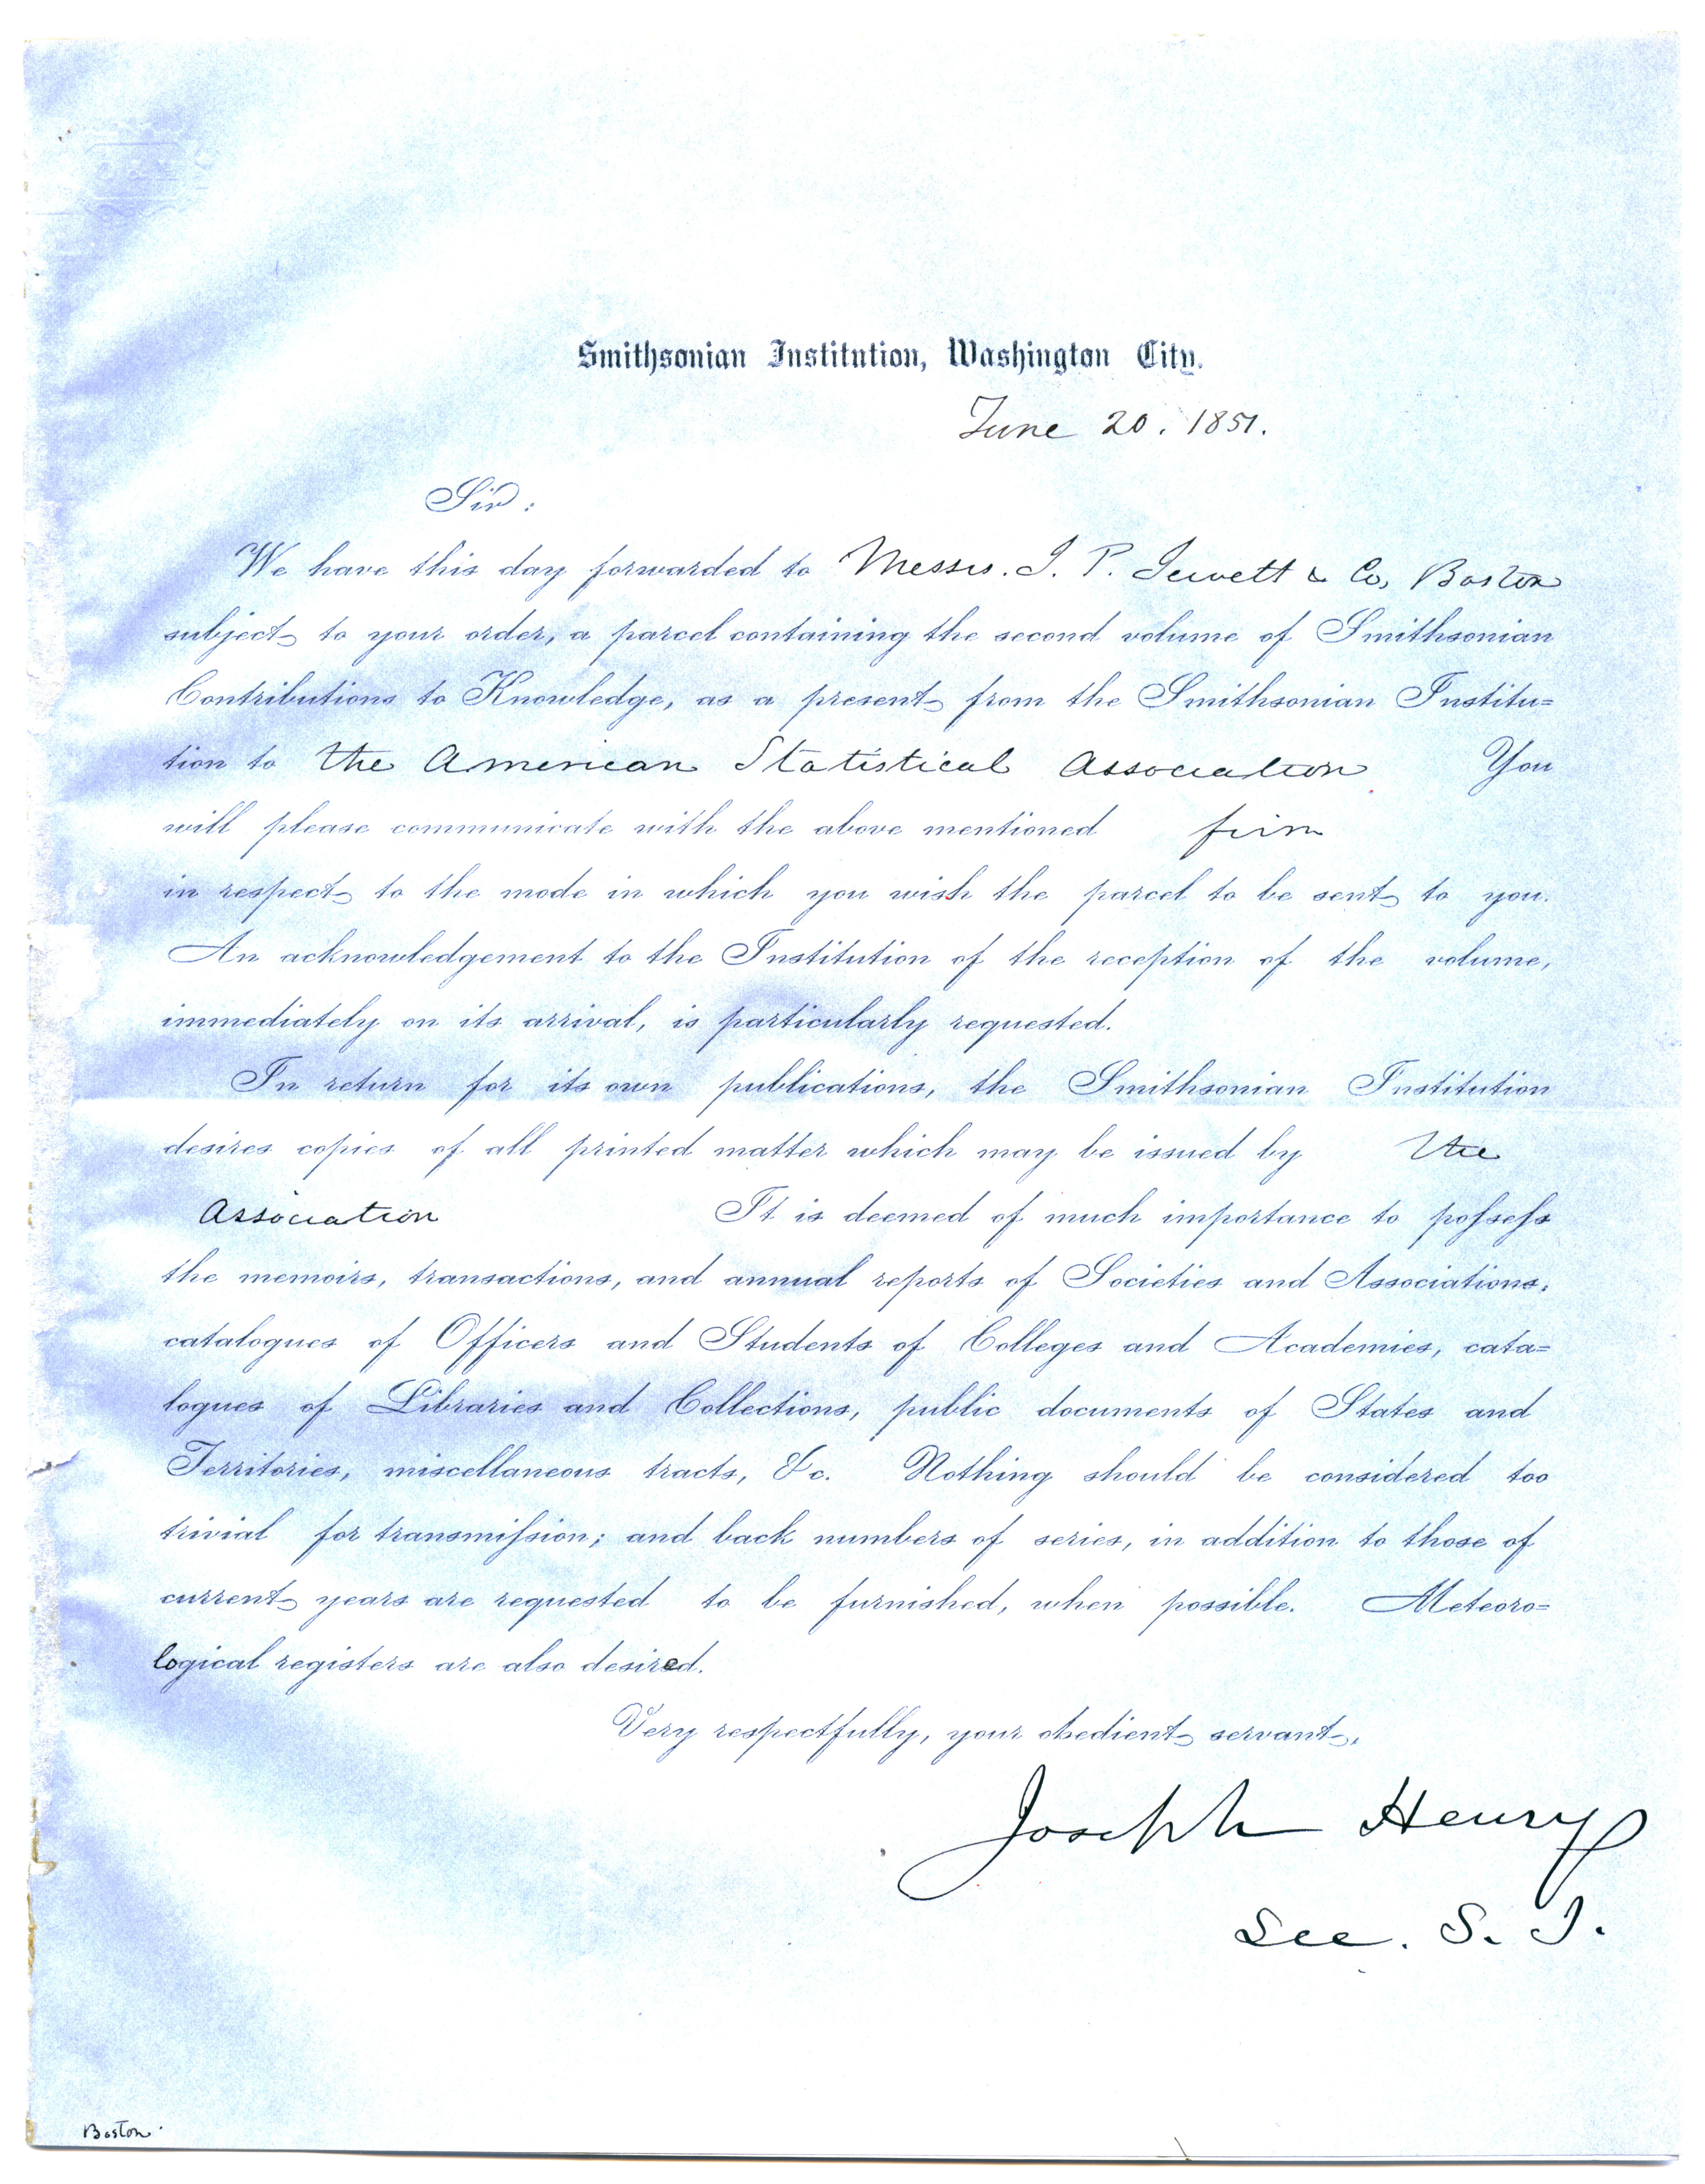 Smithsonian Institution, Washington City.
June 20. 1851.
Sir:
We have this day forwarded to Messrs. J. P. Jewett & Co, Boston
subject to your order, a parcel containing the second volume of Smithsonian
Contributions to Knowledge, as a present from the Smithsonian Institu=
tion to the American Statistical Association You
will please communicate with the above mentioned firm
in respect to the mode in which you wish the parcel to be sent to you.
An acknowledgement to the Institution of the reception of the volume,
immediately on its arrival, is particularly requested.
In return for its own publications, the Smithsonian Institution
desires copies of all printed matter which may be issued by the
Association It is deemed of much importance to poſseſs
the memoirs, transactions, and annual reports of Societies and Associations,
catalogues of Officers and Students of Colleges and Academies, cata=
logues of Libraries and Collections, public documents of States and
Territories, miscellaneous tracts, &c. Nothing should be considered too
trivial for transmiſsion; and back numbers of series, in addition to those of
current years are requested to be furnished, when possible. Meteoro=
logical registers are also desired.
Very respectfully, your obedient servant,
Joseph Henry
Sec. S. I.
Boston